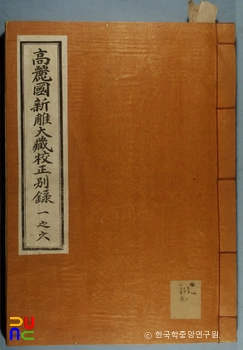 高麗國新雕大藏校正別錄 一之六
ⓒ 한국학중앙연구원